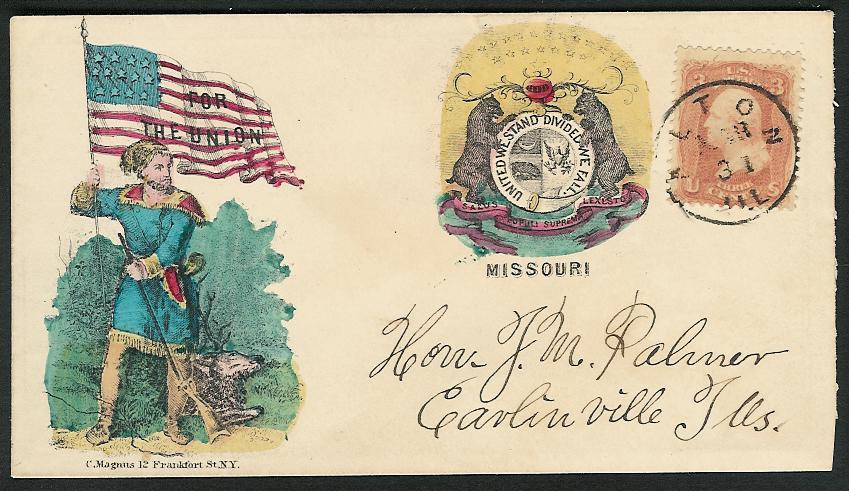 FOR
THE UNION
C. Magnus 12 Frankfort St. N.Y.
UNITED WE STAND DIVIDED WE FALL.
SALUS POPULI SUPREMA LEX ESTO
MISSOURI
3 U.S. 3
U CENTS S
ALTON
31
ILL
Hon. J. M. Palmer
Carlinville Ills.